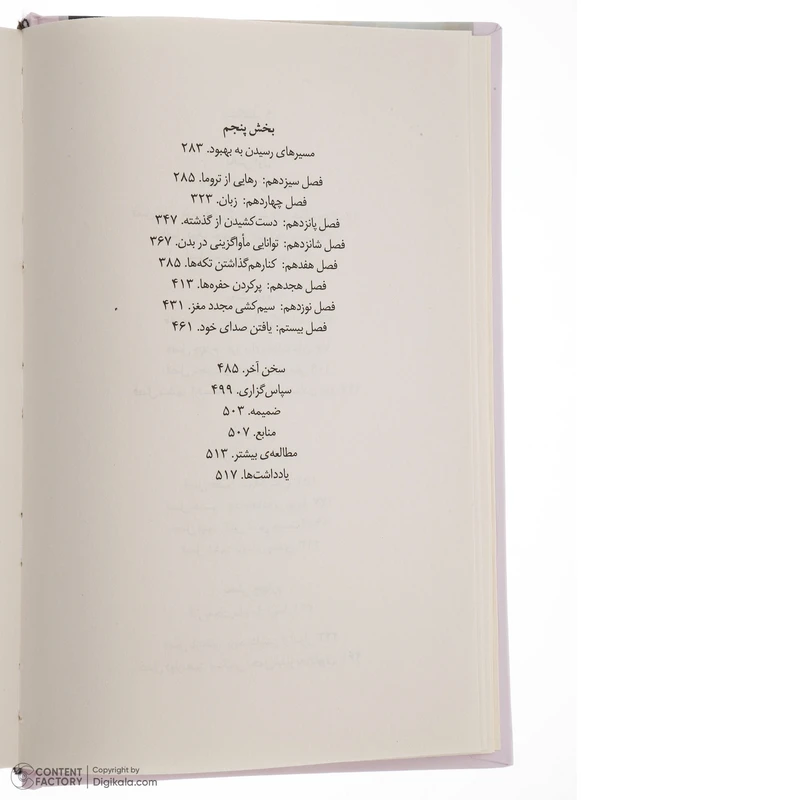 بخش پنجم
مسیرهای رسیدن به بهبود. ۲۸۳
فصل سیزدهم: رهایی از تروما. ۲۸۵
فصل چهاردهم: زبان. ۳۲۳
فصل پانزدهم: دست‌کشیدن از گذشته. ۳۴۷
فصل شانزدهم: توانایی مأواگزینی در بدن. ۳۶۷
فصل هفدهم: کنارهم‌گذاشتن تکه‌ها. ۳۸۵
فصل هجدهم: پرکردن حفره‌ها. ۴۱۳
فصل نوزدهم: سیم‌کشی مجدد مغز. ۴۳۱
فصل بیستم: یافتن صدای خود. ۴۶۱
سخن آخر. ۴۸۵
سپاس‌گزاری. ۴۹۹
ضمیمه. ۵۰۳
منابع. ۵۰۷
مطالعه‌ی بیشتر. ۵۱۳
یادداشت‌ها. ۵۱۷
CONTENT FACTORY
Copyright by
Digikala.com